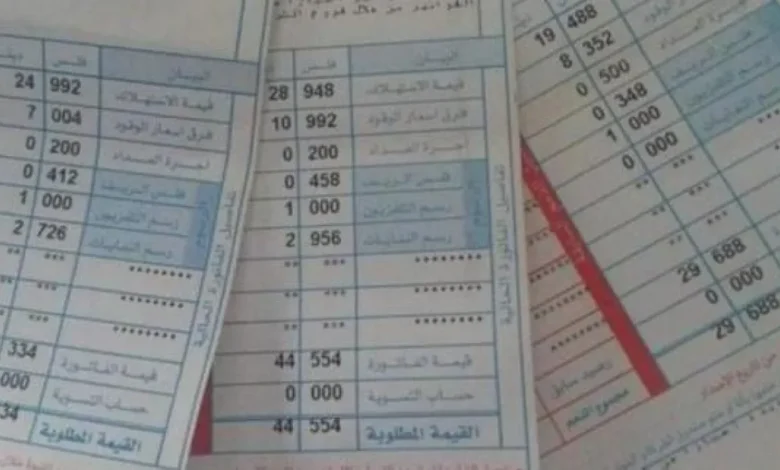 فلس البيان
24 992 قيمة الاستهلاك
7 004 فرق اسعار الوقود
0 200 اجرة العداد
0 412 فلس الريف
1 000 رسم التلفزيون
2 726 رسم النفايات
** *** ********
** *** ********
** *** ********
334 قيمة الفاتورة
000 حساب التسوية
334 القيمة المطلوبة
تفاصيل الفاتورة الحالية
فلس البيان
28 948 قيمة الاستهلاك
10 992 فرق اسعار الوقود
0 200 اجرة العداد
0 458 فلس الريف
1 000 رسم التلفزيون
2 956 رسم النفايات
** *** ********
** *** ********
** *** ********
44 554 قيمة الفاتورة
0 000 حساب التسوية
44 554 القيمة المطلوبة
تفاصيل الفاتورة الحالية
19 488
8 352
0 500
0 348
1 000
0 000
** ***
** ***
** ***
29 688
0 000
29 688
رصيد سابق
مجموع الذمم